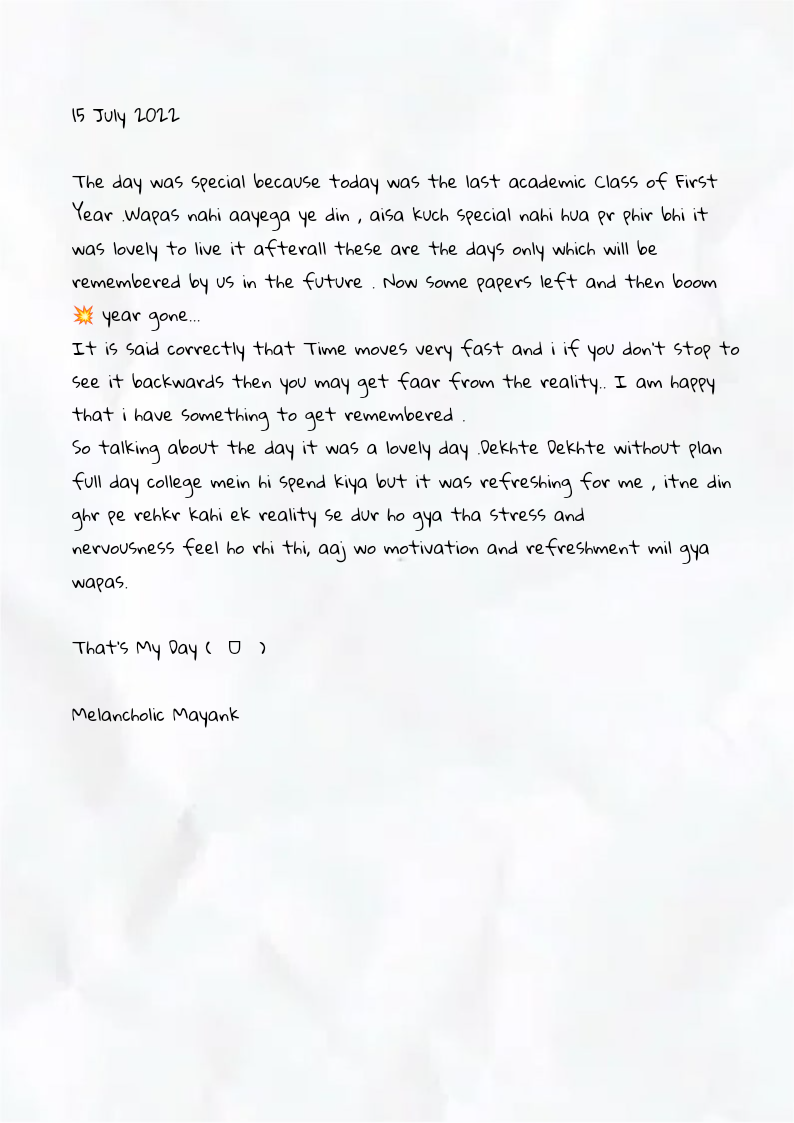 15 July 2022
The day was special because today was the last academic Class of First
Year .Wapas nahi aayega ye din , aisa kuch special nahi hua pr phir bhi it
was lovely to live it afterall these are the days only which will be
remembered by us in the future . Now some papers left and then boom
💥 year gone...
It is said correctly that Time moves very fast and i if you don't stop to
see it backwards then you may get faar from the reality.. I am happy
that i have something to get remembered .
So talking about the day it was a lovely day .Dekhte Dekhte without plan
full day college mein hi spend kiya but it was refreshing for me , itne din
ghr pe rehkr kahi ek reality se dur ho gya tha stress and
nervousness feel ho rhi thi, aaj wo motivation and refreshment mil gya
wapas.
That's My Day ( ▢ )
Melancholic Mayank